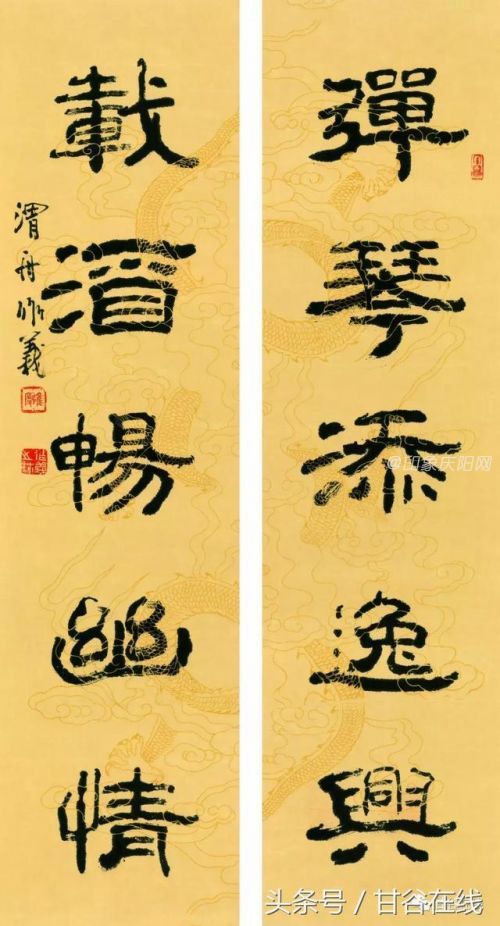 彈琴添逸興
載酒暢幽情
渭舟作義
@印象庆阳网
头条号 / 甘谷在线